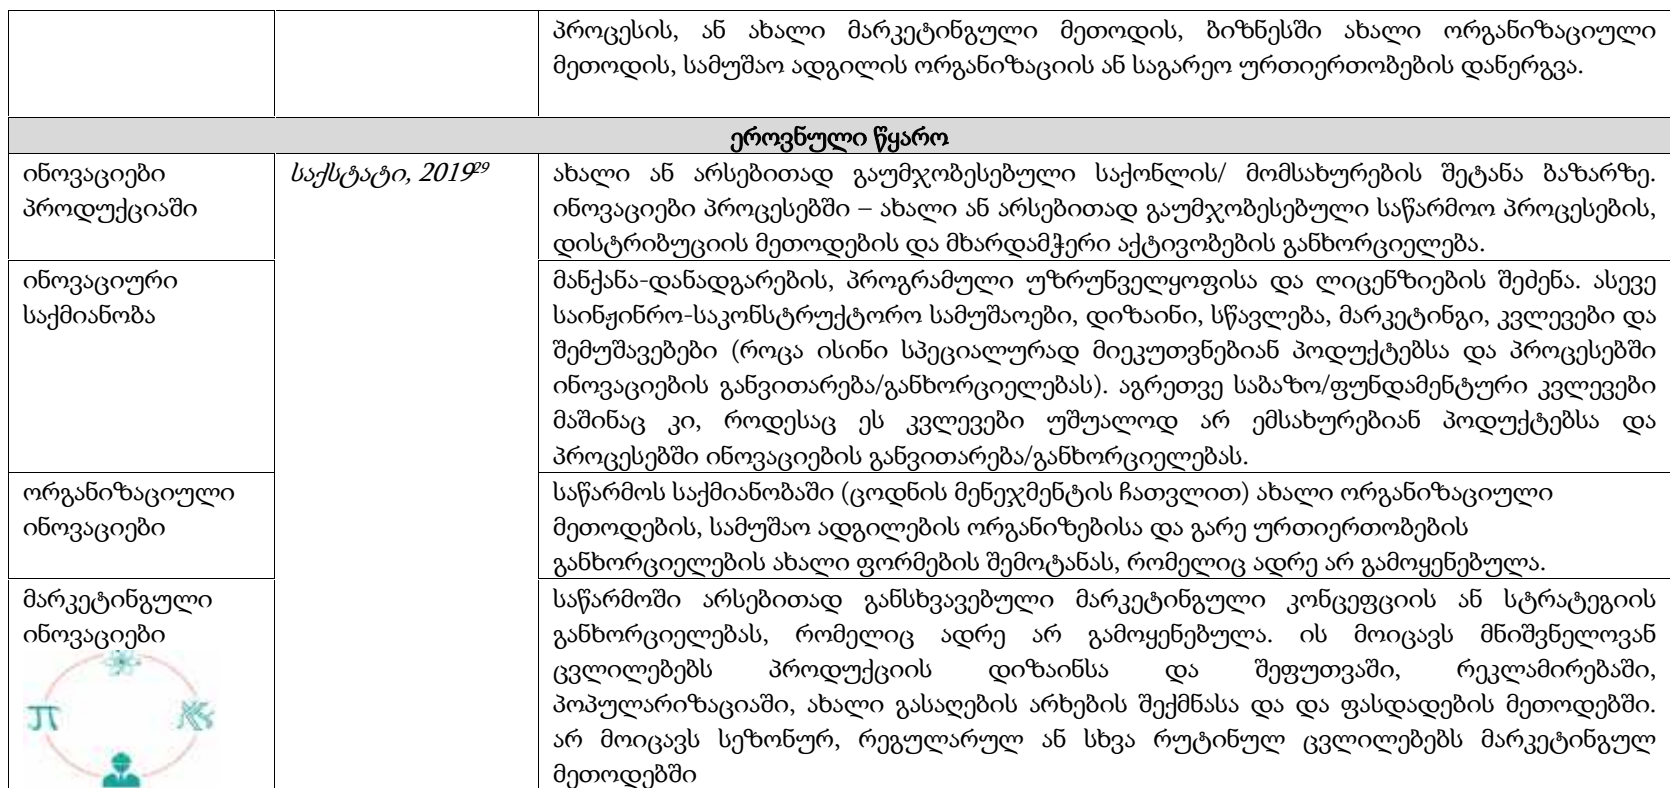 პროცესის, ან ახალი მარკეტინგული მეთოდის, ბიზნესში ახალი ორგანიზაციული
მეთოდის, სამუშაო ადგილის ორგანიზაციის ან საგარეო ურთიერთობების დანერგვა.
ეროვნული წყარო
ინოვაციები
პროდუქციაში
საქსტატი, 2019²⁹
ახალი ან არსებითად გაუმჯობესებული საქონლის/ მომსახურების შეტანა ბაზარზე.
ინოვაციები პროცესებში – ახალი ან არსებითად გაუმჯობესებული საწარმოო პროცესების,
დისტრიბუციის მეთოდების და მხარდამჭერი აქტივობების განხორციელება.
ინოვაციური
საქმიანობა
მანქანა-დანადგარების, პროგრამული უზრუნველყოფისა და ლიცენზიების შეძენა. ასევე
საინჟინრო-საკონსტრუქტორო სამუშაოები, დიზაინი, სწავლება, მარკეტინგი, კვლევები და
შემუშავებები (როცა ისინი სპეციალურად მიეკუთვნებიან პოდუქტებსა და პროცესებში
ინოვაციების განვითარება/განხორციელებას). აგრეთვე საბაზო/ფუნდამენტური კვლევები
მაშინაც კი, როდესაც ეს კვლევები უშუალოდ არ ემსახურებიან პოდუქტებსა და
პროცესებში ინოვაციების განვითარება/განხორციელებას.
ორგანიზაციული
ინოვაციები
საწარმოს საქმიანობაში (ცოდნის მენეჯმენტის ჩათვლით) ახალი ორგანიზაციული
მეთოდების, სამუშაო ადგილების ორგანიზებისა და გარე ურთიერთობების
განხორციელების ახალი ფორმების შემოტანას, რომელიც ადრე არ გამოყენებულა.
მარკეტინგული
ინოვაციები
π
საწარმოში არსებითად განსხვავებული მარკეტინგული კონცეფციის ან სტრატეგიის
განხორციელებას, რომელიც ადრე არ გამოყენებულა. ის მოიცავს მნიშვნელოვან
ცვლილებებს პროდუქციის დიზაინსა და შეფუთვაში, რეკლამირებაში,
პოპულარიზაციაში, ახალი გასაღების არხების შექმნასა და და ფასდადების მეთოდებში.
არ მოიცავს სეზონურ, რეგულარულ ან სხვა რუტინულ ცვლილებებს მარკეტინგულ
მეთოდებში